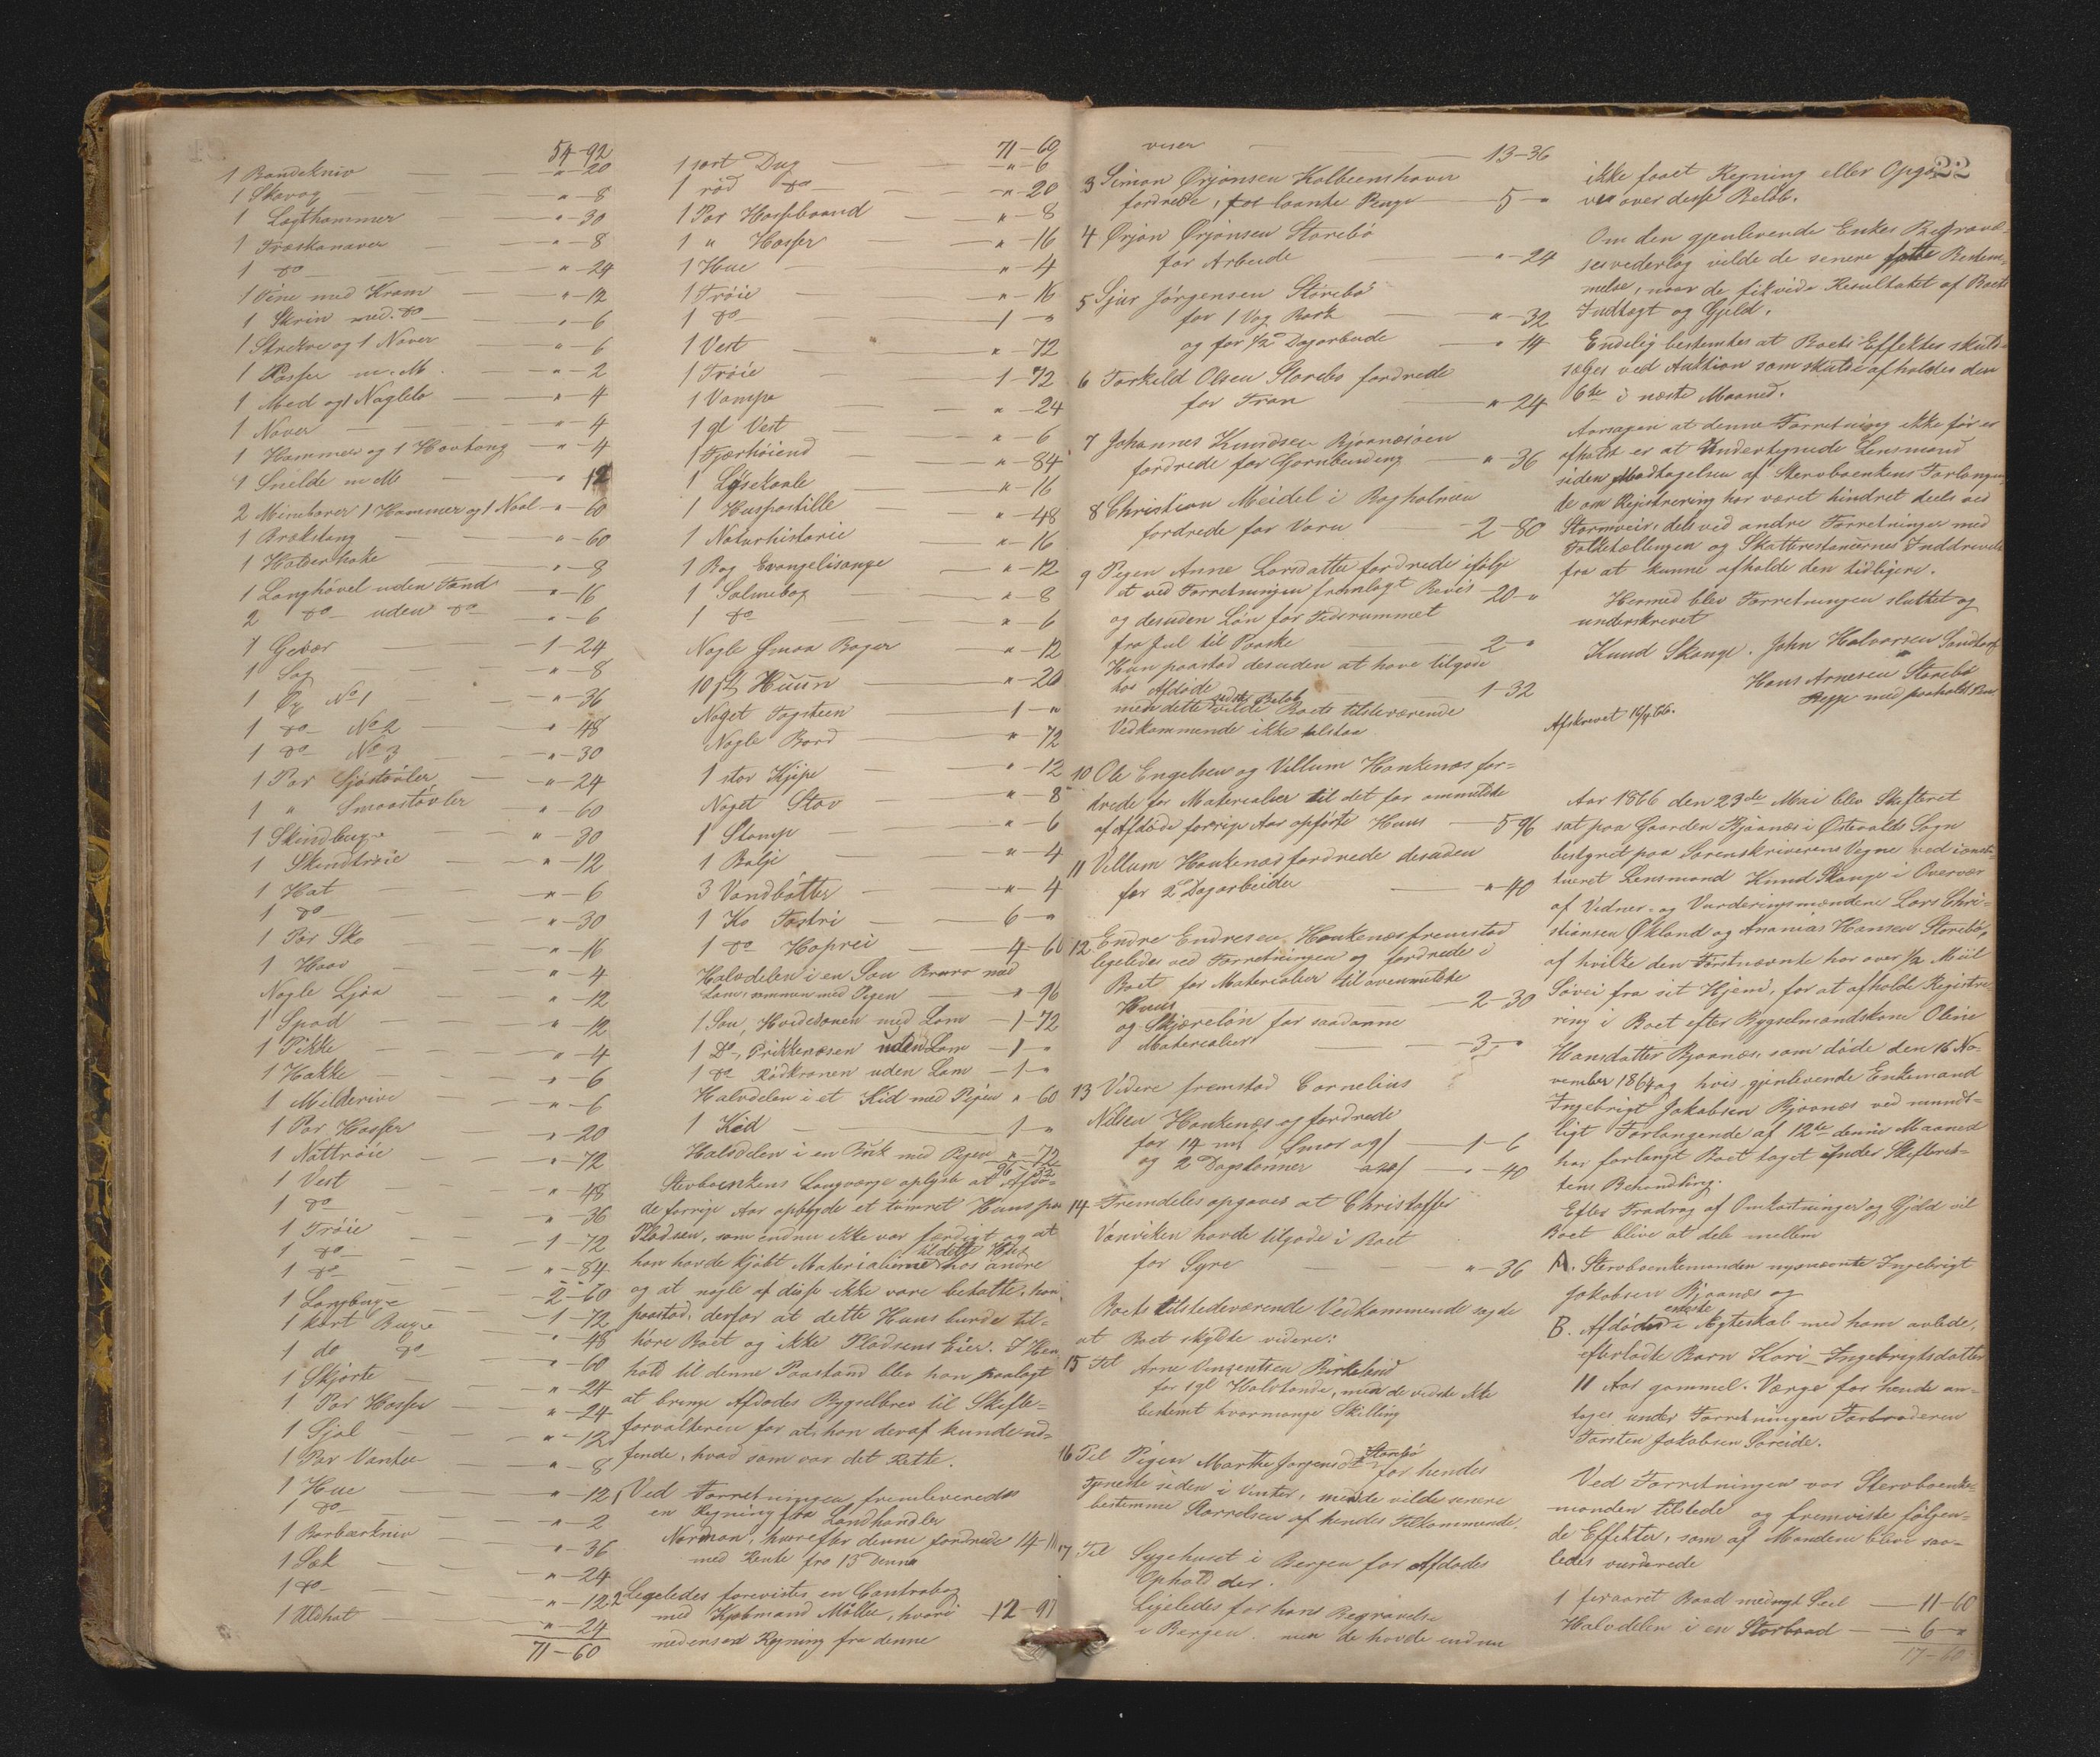 54-92
1 Baandekniv " - 20
1 Skavog " - 8
1 Lægthammer " - 30
1 Træskonaver " - 8
1 do " - 24
1 Tine med Kram " - 12
1 Skrin med do " - 6
1 Strekve og 1 Naver " - 6
1 Passer m. M. " - 2
1 Med og 1 Naglelo " - 4
1 Naver " - 4
1 Hammer og 1 Hovtang " - 4
1 Snilde m M " - 12
2 Minebarer 1 Hammer og 1 Naal " - 60
1 Brækstang " - 60
1 Haterhake " - 8
1 Langhövel uden Tand " - 16
2 do uden do " - 6
1 Gevær 1 - 24
1 Sag " - 8
1 Øx No 1 " - 36
1 do No 2 " - 48
1 do No 3 " - 30
1 Par Sjöstövler " - 24
1 " Smaastövler " - 60
1 Skindbuxe " - 30
1 Skindtröie " - 12
1 Hat " - 6
1 do " - 30
1 Par Sko " - 16
1 Haav " - 4
Nogle Ljaa " - 12
1 Spad " - 12
1 Pikke " - 4
1 Hakke " - 6
1 Milderive " - 6
1 Par Hosser " - 20
1 Nattröie " - 72
1 Vest " - 48
1 do " - 36
1 Tröie 1 - 72
1 do " - 84
1 do 2 - 60
1 Langbuxe 1 - 72
1 kort Buxe " - 48
1 do do " - 60
1 Skjorte " - 24
1 Par Hosser " - 24
1 Sjal " - 12
1 Par Vanter " - 8
1 Hue " - 12
1 do " - 2
1 Barbærkniv " - 36
1 Sæk " - 24
1 do " - 12
1 Uldhat " - 24
71-60
71-60
1 sort Dug " - 6
1 rød do " - 20
1 Par Hossebaand " - 8
1 " Hosser " - 16
1 Hue " - 4
1 Tröie " - 16
1 do 1 - "
1 Vest " - 72
1 Tröie 1 - 72
1 Vampe " - 24
1 gl Vest " - 6
1 Fjærhöiend " - 84
1 Lysekarle " - 16
1 Huspostille " - 48
1 Naturhistorie " - 16
1 Bog Evangelisange " - 12
1 Salmebog " - 8
1 do " - 6
Nogle Smaa Bøger " - 12
10 st Huun " - 20
Noget Tagsteen 1 - "
Nogle Bord " - 72
1 stor Kjipe " - 12
Noget Stav " - 8
1 Stamp " - 6
1 Balje " - 4
3 Vandbötter " - 4
1 Ko Fastri 6 - "
1 do Haprei 4 - 60
Halvdelen i en Sau Brura med
Lam, sammen med Pigen " - 96
1 Sau, Hvidesauen med Lam 1 - 72
1 Do, Prikkenæsen uden Lam 1 - "
1 do Rödkranen uden Lam 1 - "
Halvdelen i et Kid med Pigen " - 60
1 Kid 1 - "
Halvdelen i en Buk med Pigen " - 72
96 - 32
Stervboenkens Laugværge oplyste at Afdö-
de forrige Aar opbygde et tömret Huus paa
Pladsen, som endnu ikke var færdigt og at
han havde kjöbt Materialierne til dette Hus hos andre
og at nogle af disse ikke vare betalte, han
paastod, derfor at dette Huus burde til-
höre Boet og ikke Pladsens Eier. I Hen
hold til denne Paastand blev han paalagt
at bringe Afdödes Bygselbrev til Skifte-
forvalteren for at han deraf kunde ud-
finde, hvad som var det Rette.
1 Ved Forretningen fremleveredes
en Regning fra Landhandler
Nordman, hvorefter denne fordrede 14-11
med Rente fra 13 Denne
2 Ligeledes forevistes en Contrabog
med Kjøbmand Möller, hvori 12-91
medens en Regning fra denne
viser 13-36
3 Simon Ørjansen Kolbeenshavn
fordrede, for laante Penge 5 - "
4 Ørjan Ørjansen Storebö
for Arbeide " - 24
5 Sjur Jörgensen Storebö
for 1 Vog Bark " - 32
og for 1/2 Dagarbeide " - 14
6 Torkild Olsen Storebö fordrede
for Tran " - 24
7 Johannes Knudsen Bjoanesöen
fordrede for Garnbinding " - 36
8 Christian Meidel i Bagholmen
fordrede for Varer 2 - 80
9 Pigen Anne Larsdatter fordrede ifølge
et ved Forretningen fremlagt Bevis 20 - "
og desuden Lön for Tidsrummet
fra Jul til Paaske 2 - "
Hun paastod desuden at have tilgode
hos Afdöde 1 - 32
men dette sidste Belöb vilde Boets tilstedeværende
Vedkommende ikke tilstaa
10 Ole Engelsen og Villum Haukenæs for=
drede for Materialier til det for ommeldte
af Afdöde forrige Aar opförte Huus 5-96
11 Villum Haukenæs fordrede desuden
for 2 Dagarbeider " - 40
12 Endre Endresen Haukenæs fremstod
ligeledes ved Forretningen og fordrede i
Boet for Materialier til ovenmeldte
Huus 2-30
og Skjæreløn for saadanne
Materialier 3 - "
13 Videre fremstod Cornelius
Nilsen Haukenæs og fordrede
for 14 m Smør 1 - 6
og 2 Dagslønner " - 40
14 Fremdeles opgaves at Christoffer
Vanviken havde tilgode i Boet
for Syre " - 36
Boets tilstedeværende Vedkommende sagde
at Boet skyldte videre:
15 Til Arne Vinzentsen Birkeland
for 1 gl Halvtønde, men de vidste ikke
bestemt hvormange Skilling
16 Til Pigen Marthe Jørgensdr Storebö for hendes
Tjeneste siden i Vinter, men de vilde senere
bestemme Størrelsen af hendes Tilkommende.
17 Til Sygehuset i Bergen for Afdødes
Ophold der.
Ligeledes for hans Begravelse
i Bergen men de havde endnu
22
ikke faaet Regning eller Opga
ver over disse Beløb.
Om den gjenlevende Enkes Begravel-
sesvederlag vilde de senere fatte Bestem-
melse, naar de fik vide Resultatet af Boets
Indtægt og Gjeld.
Endelig bestemtes at Boets Effekter skulde
sælges ved Auktion som skulde afholdes den
6te i næste Maaned.
Aarsagen at denne Forretning ikke før er
afholdt er at Undertegnede Lensmand
siden Modtagelsen af Stervboenkens Forlangen
de om Registrering har været hindret deels ved
Stormveir, dels ved andre Forretninger med
Folketællingen og Skatterestancernes Inddrivelse
fra at kunne afholde den tidligere.
Hermed blev Forretningen sluttet og
underskrevet
Knud Skange. John Halvorsen Sandtorv
Hans Arnesen Storebö
Begge med paaholdt Pen
Afskrevet 16/4 66.
Aar 1866 den 23de Mai blev Skifteret
sat paa Gaarden Bjoanæs i Østevolds Sogn
bestyret paa Sorenskriverens Vegne ved consti-
tueret Lensmand Knud Skange i Overvær
af Vidner- og Vurderingsmændene Lars Chri-
stiansen Økland og Ananias Hansen Storebö,
af hvilke den Förstnævnte har over 1/2 Miil
Søvei fra sit Hjem, for at afholde Registre
ring i Boet efter Bygselmandskone Oline
Hansdatter Bjoanæs, som døde den 16 No-
vember 1864 og hvis gjenlevende Enkemand
Ingebrigt Jakobsen Bjoanæs ved mundt-
ligt Forlangende af 12te denne Maaned
har forlangt Boet taget under Skifteret-
tens Behandling.
Efter Fradrag af Omkostninger og Gjeld vil
Boet blive at dele mellem
A. Stervboenkemanden nysnævnte Ingebrigt
Jakobsen Bjoanæs og
B. Afdødes eneste i Ægteskab med ham avlede,
efterladte Barn Kari Ingebrigtsdatter
11 Aar gammel. Værge for hende an-
toges under Forretningen Farbroderen
Torsten Jakobsen Soreide.
Ved Forretningen var Stervboenke-
manden tilstede og fremviste følgen-
de Effekter, som af Mændene bleve saa-
ledes vurderede
1 firaaret Baad med Seil 11-60
Halvdelen i en Storbaad 6 - "
17-60